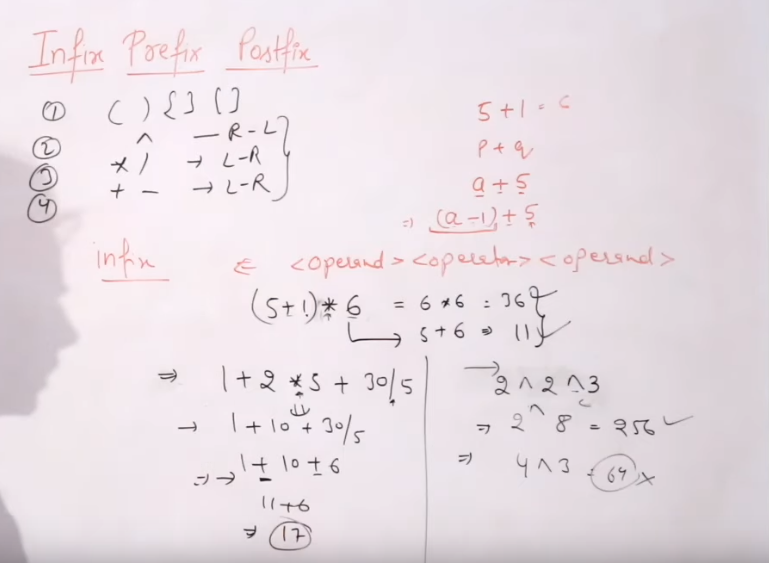 Infix Prefix Postfix
① ( ) { } [ ]
② ^ — R-L
③ * / → L-R
④ + - → L-R
5+1 = 6
P + q
a + 5
⇒ (a-1) + 5
infix ∈ <operand> <operator> <operand>
(5+1) * 6 = 6 * 6 = 36
→ 5+6 ⇒ 11 ✓
⇒ 1 + 2 * 5 + 30/5
→ 1 + 10 + 30/5
⇒ → 1 + 10 + 6
11+6
⇒ 17
→ 2 ^ 2 ^ 3
⇒ 2 ^ 8 = 256 ✓
⇒ 4 ^ 3 = 64 ×